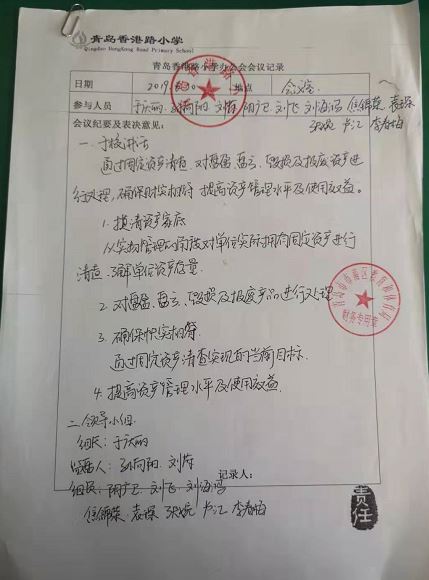 青岛香港路小学
Qingdao HongKong Road Primary School
青岛香港路小学办公会会议记录
日期 2019. 地点 会议室
参与人员 于庆丽 孙向阳 刘芳 阴广卫 刘飞 刘海鸿 袁琛
卢江 李春梅
会议纪要及表决意见：
一. 于校讲话
通过固定资产清查，对盘盈、盘亏、毁损及报废资产进
行处理，确保账实相符，提高资产管理水平及使用效益。
1. 摸清资产家底
从实物管理的角度对单位实际拥有固定资产进行
清查，了解单位资产存量
2. 对盘盈、盘亏、毁损及报废产品进行处理
3. 确保账实相符
通过固定资产清查实现的当前目标
4. 提高资产管理水平及使用效益.
二. 领导小组
组长：于庆丽
孙向阳. 刘芳
记录人：
组员：阴广卫 刘飞 刘海鸿
袁琛 卢江 李春梅
财务专用章
责任